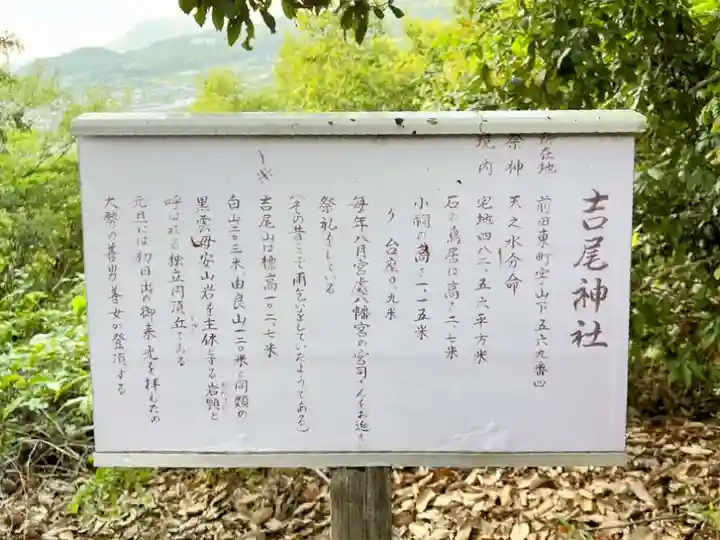 吉尾神社
所在地 前田東町字山下五六九番四
祭神 天之水分命
境内 宅地四八二、五六平方米
石の鳥居は高さ二、七米
小祠の高さ一、一五米
〃 台座〇、九米
毎年八月宮處八幡宮の宮司さんをお迎えし
祭礼をしている
(その昔ここで雨乞いをしていたようである)
吉尾山は標高一〇二、七米
白山二〇三米、由良山一二〇米と同類の
黒雲母安山岩を主体とする岩頸と
呼ばれる独立円頂丘である
元旦には初日出の御来光を拝むため
大勢の善男善女が登頂する